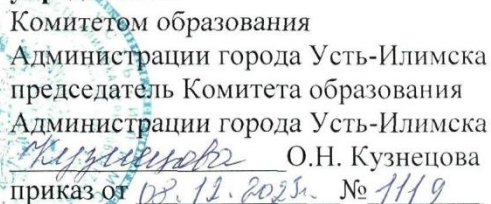 Комитетом образования
Администрации города Усть-Илимска
председатель Комитета образования
Администрации города Усть-Илимска
Кузнецова О.Н. Кузнецова
приказ от 08.12.2025г. № 1119